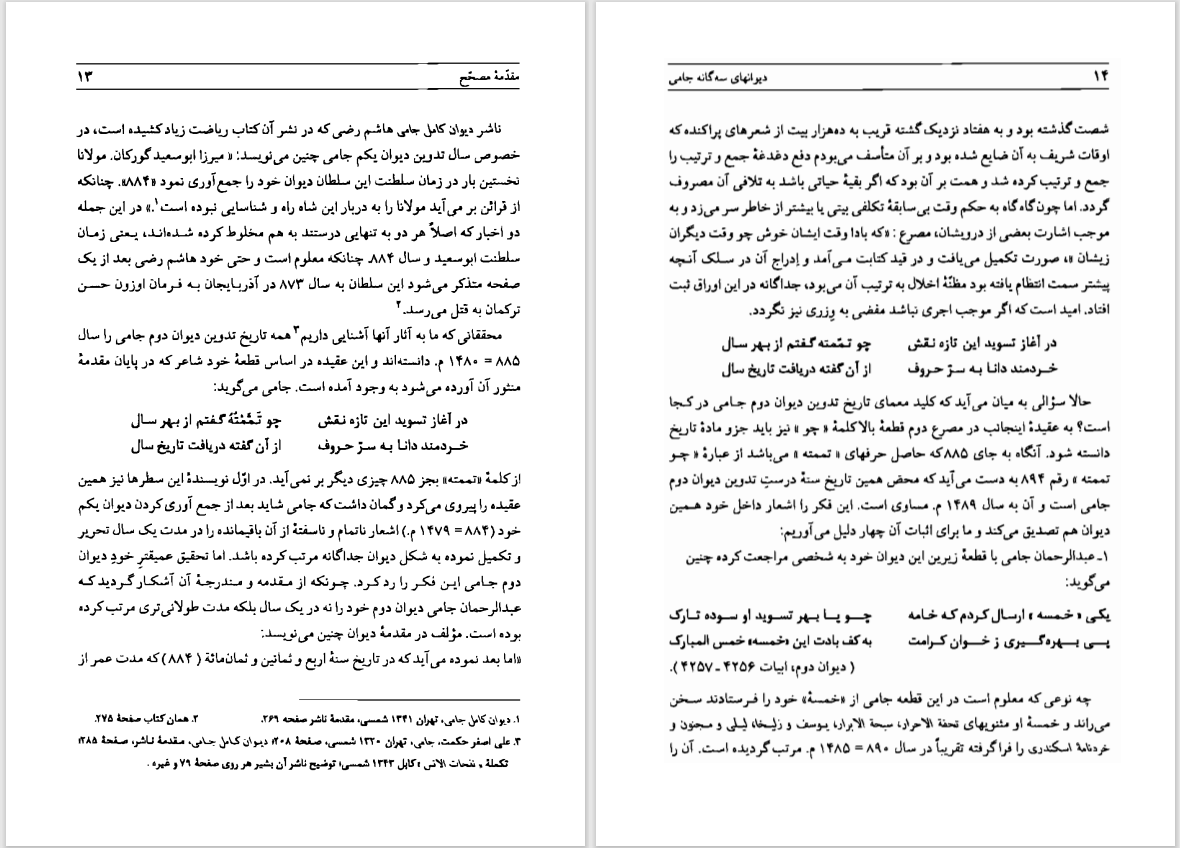 مقدّمهٔ مصحّح ۱۳
ناشر دیوان کامل جامی هاشم رضی که در نشر آن کتاب ریاضت زیاد کشیده است، در
خصوص سال تدوین دیوان یکم جامی چنین می‌نویسد: « میرزا ابوسعید گورکان. مولانا
نخستین بار در زمان سلطنت این سلطان دیوان خود را جمع‌آوری نمود «۸۸۴». چنانکه
از قرائن بر می‌آید مولانا را به دربار این شاه راه و شناسایی نبوده است۱.» در این جمله
دو اخبار که اصلاً هر دو به تنهایی درستند به هم مخلوط کرده شده‌اند، یعنی زمان
سلطنت ابوسعید و سال ۸۸۴. چنانکه معلوم است و حتی خود هاشم رضی بعد از یک
صفحه متذکر می‌شود این سلطان به سال ۸۷۳ در آذربایجان به فرمان اوزون حسن
ترکمان به قتل می‌رسد.۲
محققانی که ما به آثار آنها آشنایی داریم۳ همه تاریخ تدوین دیوان دوم جامی را سال
۸۸۵ = ۱۴۸۰ م. دانسته‌اند و این عقیده در اساس قطعهٔ خود شاعر که در پایان مقدمهٔ
منثور آن آورده می‌شود به وجود آمده است. جامی می‌گوید:
در آغاز تسوید این تازه نقش چو تَمَّمْتُهُ گفتم از بهر سال
خردمند دانا به سرّ حروف از آن گفته دریافت تاریخ سال
از کلمهٔ «تممته» بجز ۸۸۵ چیزی دیگر بر نمی‌آید. در اوّل نویسندهٔ این سطرها نیز همین
عقیده را پیروی می‌کرد و گمان داشت که جامی شاید بعد از جمع آوری کردن دیوان یکم
خود (۸۸۴ = ۱۴۷۹ م.) اشعار ناتمام و ناسفتهٔ از آن باقیمانده را در مدت یک سال تحریر
و تکمیل نموده به شکل دیوان جداگانه مرتب کرده باشد. اما تحقیق عمیقترِ خودِ دیوان
دوم جامی این فکر را رد کرد. چونکه از مقدمه و مندرجهٔ آن آشکار گردید که
عبدالرحمان جامی دیوان دوم خود را نه در یک سال بلکه مدت طولانی‌تری مرتب کرده
بوده است. مؤلف در مقدمهٔ دیوان چنین می‌نویسد:
«اما بعد نموده می‌آید که در تاریخ سنهٔ اربع و ثمانین و ثمان‌مائة ( ۸۸۴) که مدت عمر از
۱. دیوان کامل جامی، تهران ۱۳۴۱ شمسی، مقدمهٔ ناشر صفحه ۲۶۹. ۲. همان کتاب صفحهٔ ۲۷۵.
۳. علی اصغر حکمت، جامی، تهران ۱۳۲۰ شمسی، صفحهٔ ۲۰۸؛ دیوان کامل جامی، مقدمهٔ ناشر، صفحهٔ ۲۸۵؛
تکملهٔ و نفحات الانس «کابل ۱۳۴۳ شمسی؛ توضیح ناشر آن بشیر هروی صفحهٔ ۷۹ و غیره .
دیوانهای سه‌گانه جامی ۱۴
شصت گذشته بود و به هفتاد نزدیک گشته قریب به ده‌هزار بیت از شعرهای پراکنده که
اوقات شریف به آن ضایع شده بود و بر آن متأسف می‌بودم دفع دغدغهٔ جمع و ترتیب را
جمع و ترتیب کرده شد و همت بر آن بود که اگر بقیهٔ حیاتی باشد به تلافی آن مصروف
گردد. اما چون گاه گاه به حکم وقت بی‌سابقهٔ تکلفی بیتی یا بیشتر از خاطر سر می‌زد و به
موجب اشارت بعضی از درویشان، مصرع : «که بادا وقت ایشان خوش چو وقت دیگران
زیشان »، صورت تکمیل می‌یافت و در قید کتابت می‌آمد و اِدراج آن در سلک آنچه
پیشتر سمت انتظام یافته بود مظنّهٔ اخلال به ترتیب آن می‌بود، جداگانه در این اوراق ثبت
افتاد. امید است که اگر موجب اجری نباشد مفضی به وِزری نیز نگردد.
در آغاز تسوید این تازه نقش چو تمّمته گفتم از بهر سال
خردمند دانا به سرّ حروف از آن گفته دریافت تاریخ سال
حالا سؤالی به میان می‌آید که کلید معمای تاریخ تدوین دیوان دوم جامی در کجا
است؟ به عقیدهٔ اینجانب در مصرع دوم قطعهٔ بالا کلمهٔ « چو » نیز باید جزو مادهٔ تاریخ
دانسته شود. آنگاه به جای ۸۸۵ که حاصل حرفهای « تممته » می‌باشد از عبارهٔ « چو
تممته » رقم ۸۹۴ به دست می‌آید که محض همین تاریخ سنهٔ درستِ تدوین دیوان دوم
جامی است و آن به سال ۱۴۸۹ م. مساوی است. این فکر را اشعار داخل خود همین
دیوان هم تصدیق می‌کند و ما برای اثبات آن چهار دلیل می‌آوریم:
۱ـ عبدالرحمان جامی با قطعهٔ زیرین این دیوان خود به شخصی مراجعت کرده چنین
می‌گوید:
یکی « خمسه » ارسال کردم که خامه چو پا بهر تسوید او سوده تارک
پی بهره‌گیری ز خوان کرامت به کف بادت این «خمسه» خمس المبارک
( دیوان دوم، ابیات ۴۲۵۶ ـ ۴۲۵۷ ).
چه نوعی که معلوم است در این قطعه جامی از «خمسهٔ» خود را فرستادند سخن
می‌راند و خمسهٔ او مثنویهای تحفة الاحرار، سبحة الابرار، یوسف و زلیخا، لیلی و مجنون و
خردنامهٔ اسکندری را فرا گرفته تقریباً در سال ۸۹۰ = ۱۴۸۵ م. مرتب گردیده است. آن را